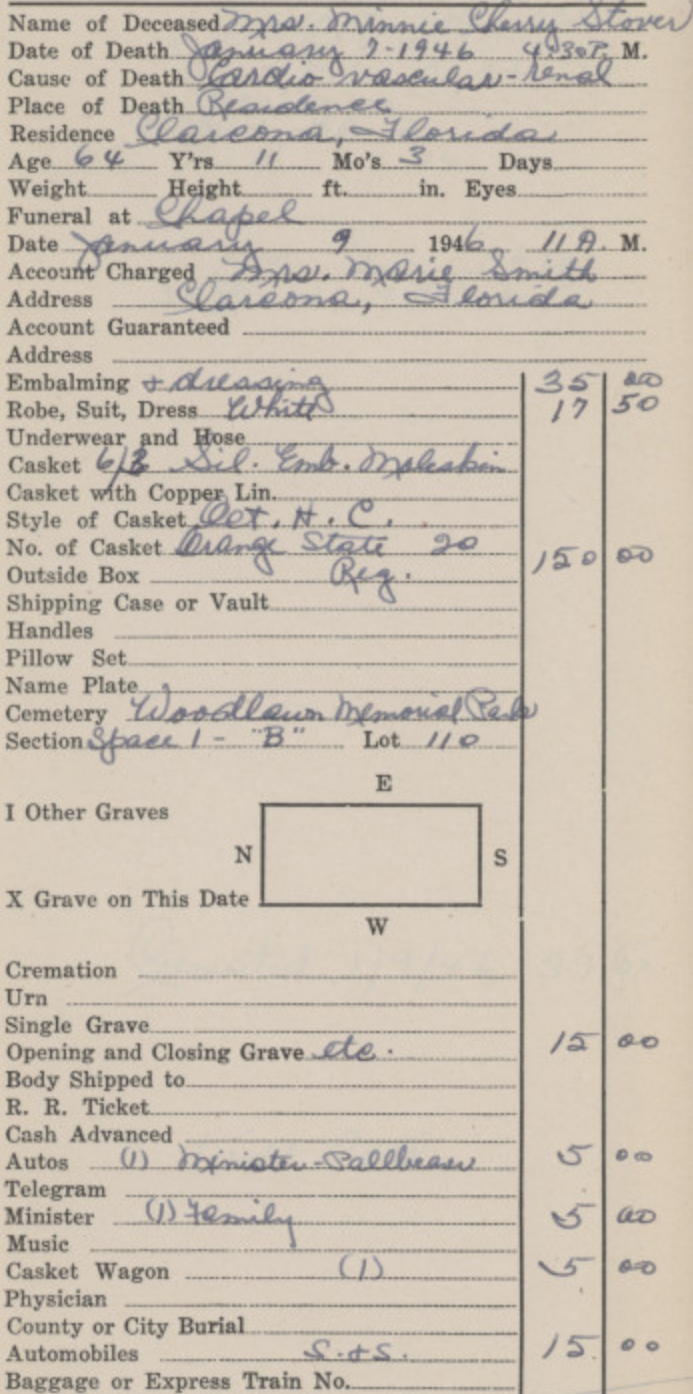 Name of Deceased Mrs. Minnie Cherry Stover
Date of Death January 7-1946 4:30 P. M.
Cause of Death Cardio vascular-renal
Place of Death Residence
Residence Clarcona, Florida
Age 64 Y'rs 11 Mo's 3 Days
Weight Height ft. in. Eyes
Funeral at Chapel
Date January 9 1946 11 A. M.
Account Charged Mrs. Marie Smith
Address Clarcona, Florida
Account Guaranteed
Address
Embalming + dressing 35 00
Robe, Suit, Dress White 17 50
Underwear and Hose
Casket 6/3 Sil. Emb. Moleskin
Casket with Copper Lin.
Style of Casket Oct. H. C.
No. of Casket Orange State 20 150 00
Outside Box Reg.
Shipping Case or Vault
Handles
Pillow Set
Name Plate
Cemetery Woodlawn Memorial Park
Section Space 1 - "B" Lot 110
E
I Other Graves
N S
X Grave on This Date
W
Cremation
Urn
Single Grave
Opening and Closing Grave etc. 15 00
Body Shipped to
R. R. Ticket
Cash Advanced
Autos (1) Minister-Pallbearer 5 00
Telegram
Minister (1) Family 5 00
Music
Casket Wagon (1) 5 00
Physician
County or City Burial
Automobiles S.+S. 15 00
Baggage or Express Train No.